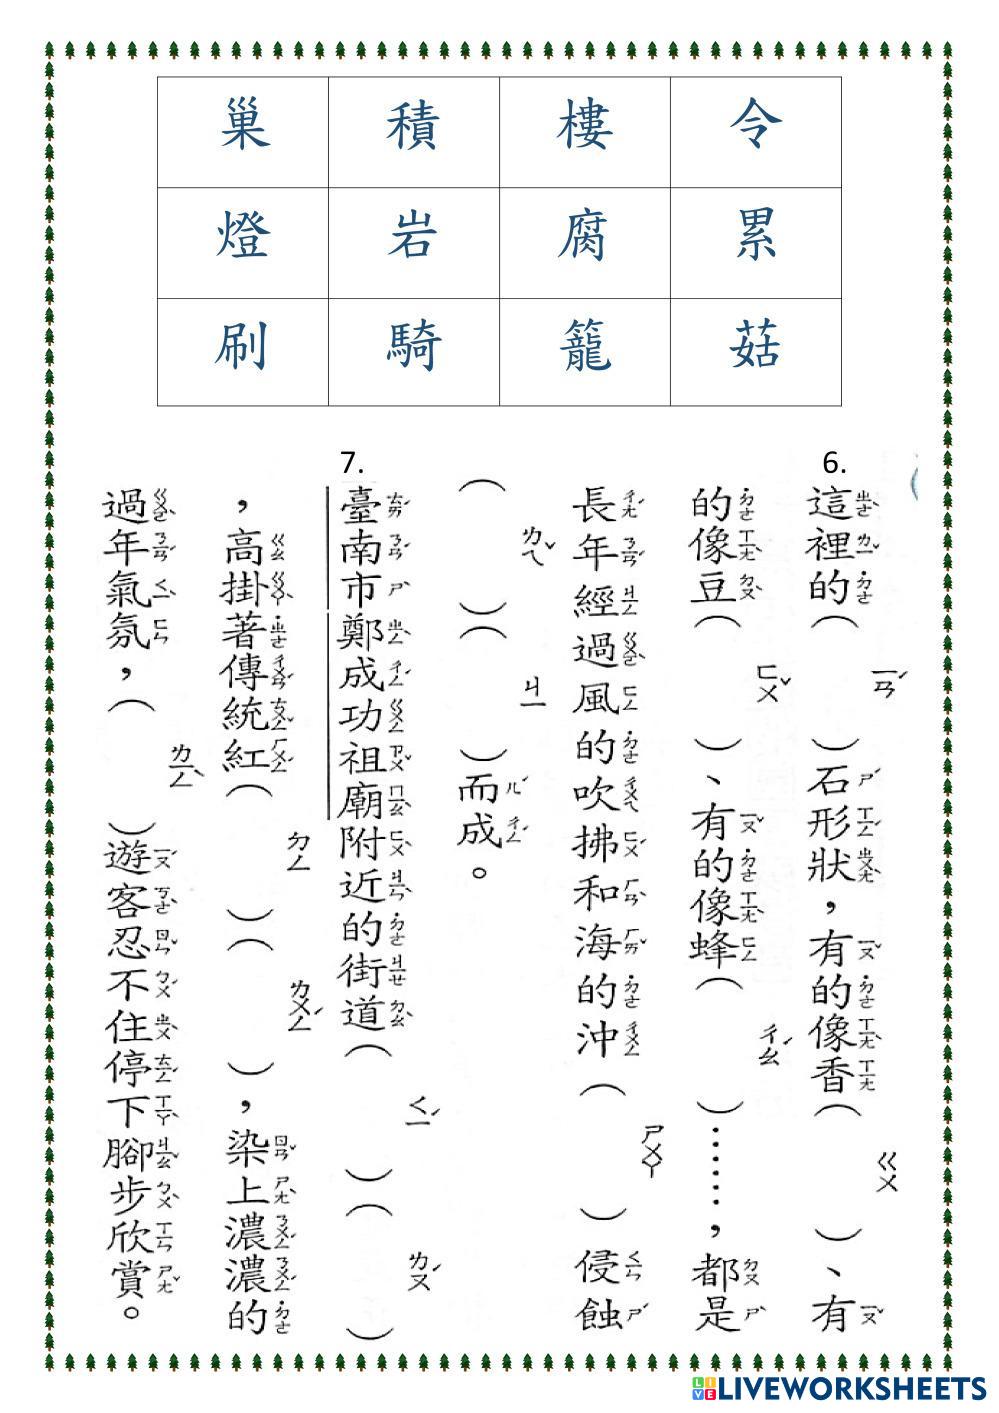 巢 積 樓 令
燈 岩 腐 累
刷 騎 籠 菇
6.
這裡的（ㄧㄢˊ）石形狀，有的像香（ㄍㄨ）、有
的像豆（ㄈㄨˇ）、有的像蜂（ㄔㄠˊ）……，都是
長年經過風的吹拂和海的沖（ㄕㄨㄚ）侵蝕
（ㄌㄟˇ）（ㄐㄧ）而成。
7.
臺南市鄭成功祖廟附近的街道（ㄑㄧˊ）（ㄌㄡˊ）
，高掛著傳統紅（ㄉㄥ）（ㄌㄨㄥˊ），染上濃濃的
過年氣氛，（ㄌㄧㄥˋ）遊客忍不住停下腳步欣賞。
LIVEWORKSHEETS